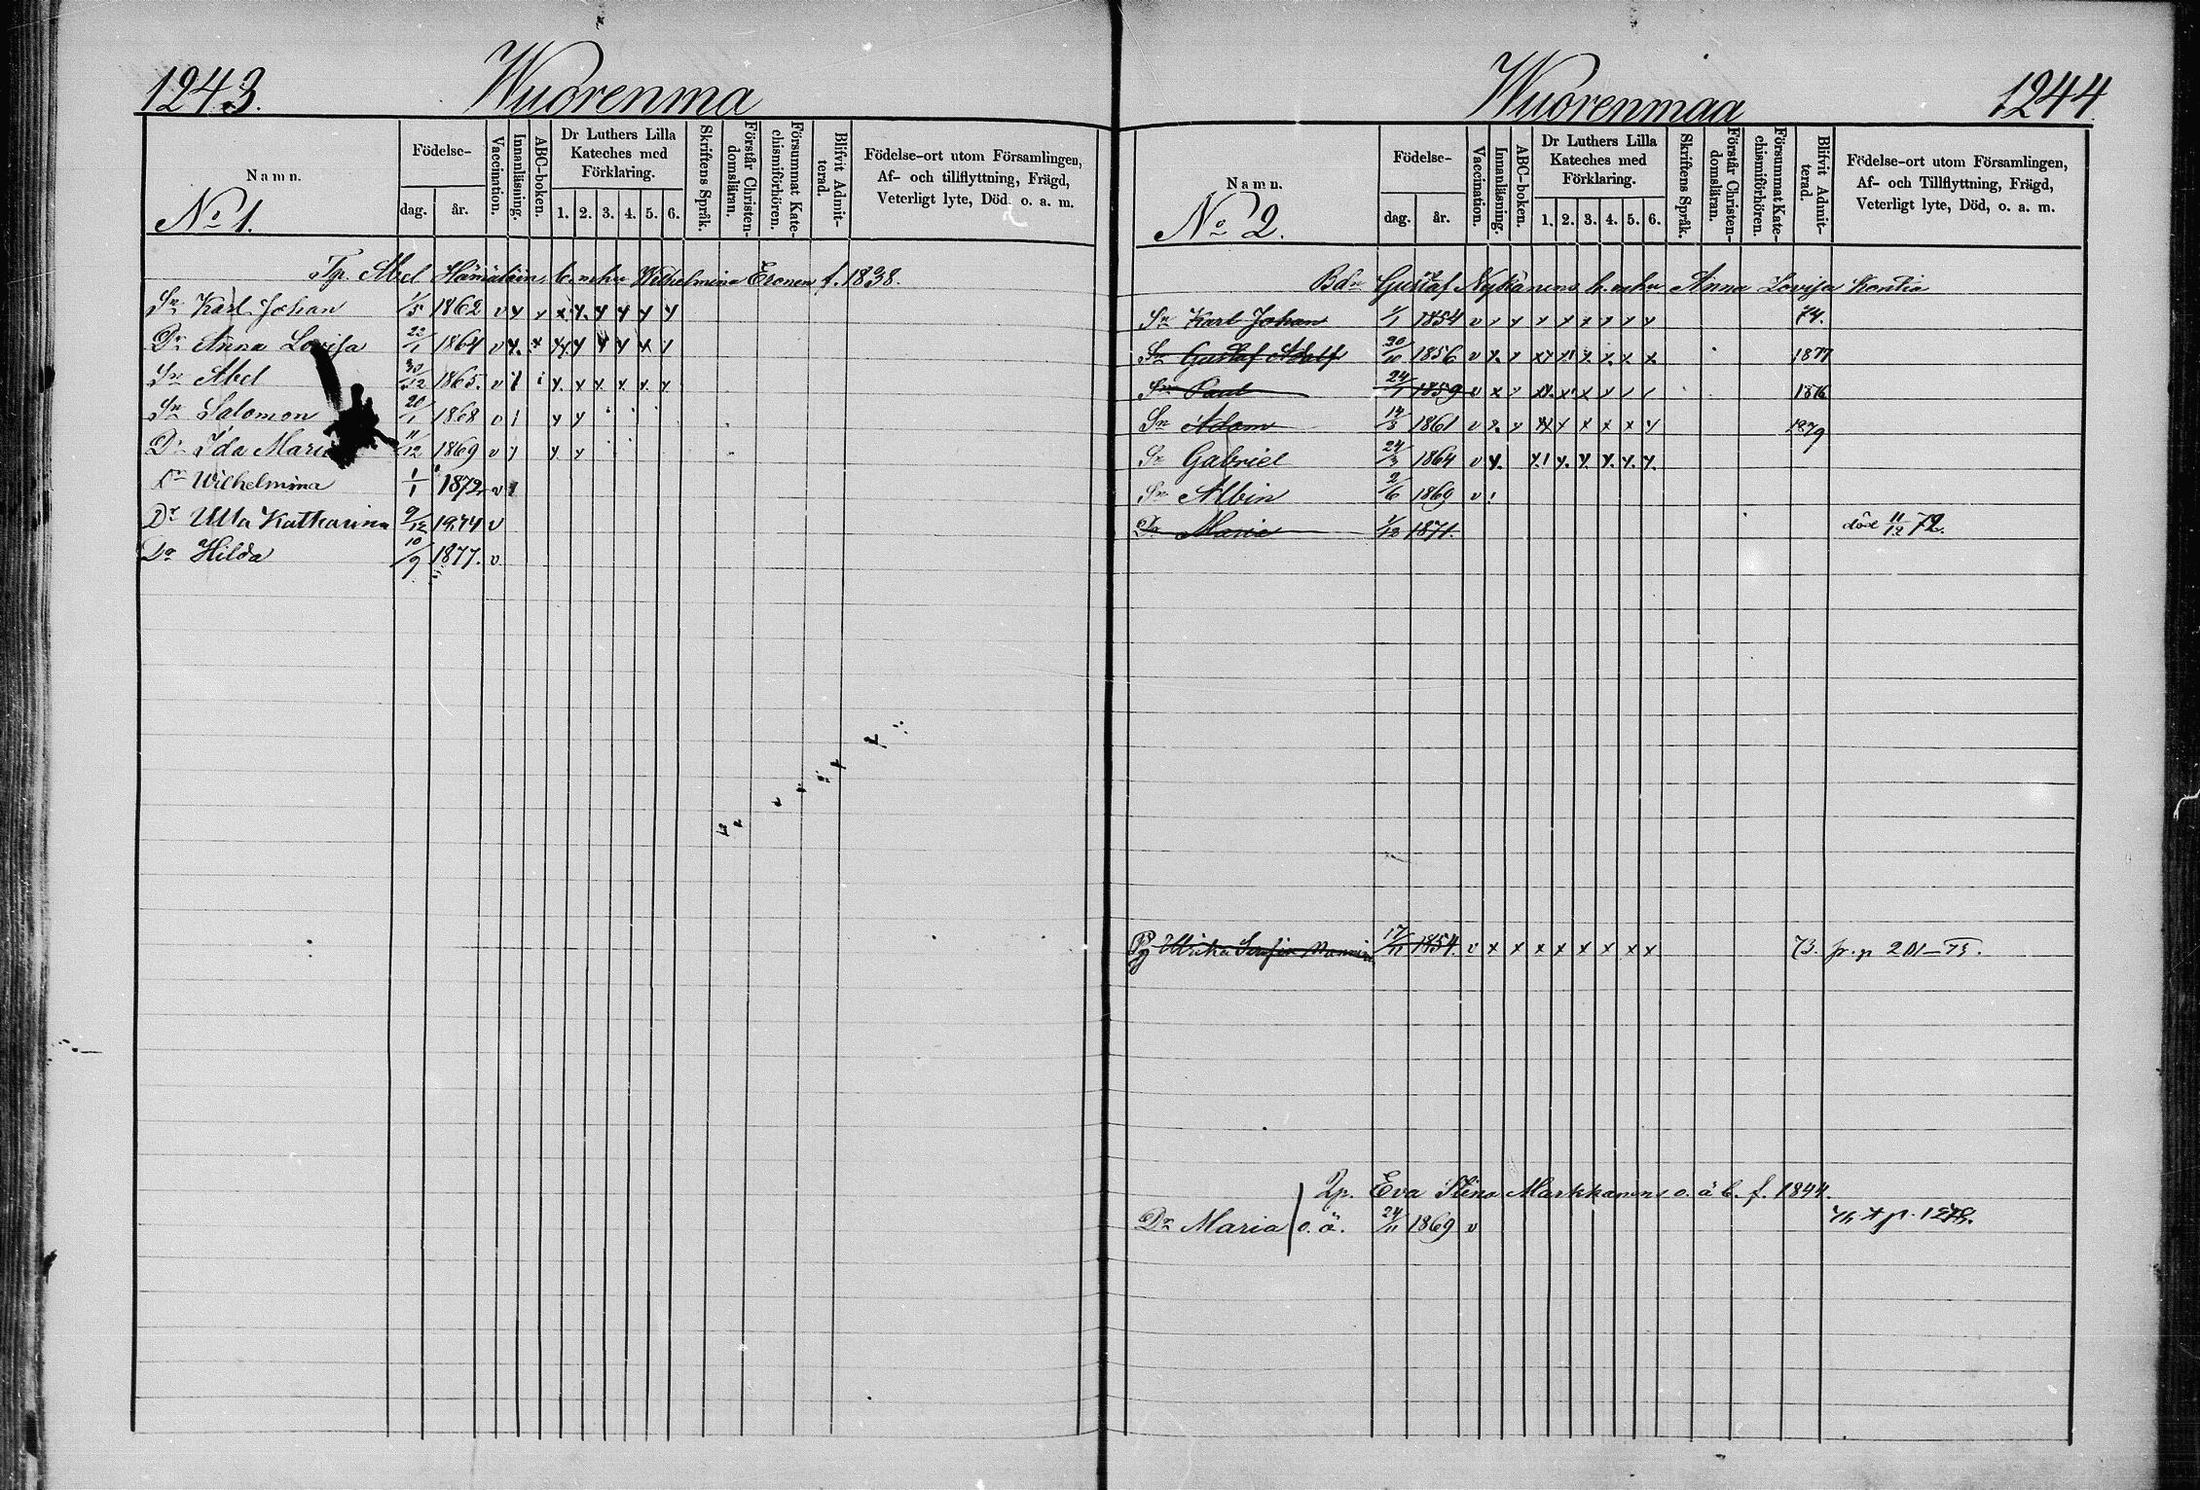 1243. Wuorenma
Namn.
Födelse-
dag. år.
Vaccination.
Innanläsning.
ABC-boken.
Dr Luthers Lilla
Kateches med
Förklaring.
1. 2. 3. 4. 5. 6.
Skriftens Språk.
Förstår Christen-
domsläran.
Försummat Kate-
chismiförhören.
Blifvit Admit-
terad.
Födelse-ort utom Församlingen,
Af- och tillflyttning, Frägd,
Veterligt lyte, Död. o. a. m.
No 1.
Tp. Abel Hämäläin b. Wilhelmina Eronen f. 1838.
Sn Karl Johan 1/5 1862 v y y x y. y y y y
Dr Anna Lovisa 22/1 1864 v
Sn Abel 30/12 1865. v
Sn Salomon 20/1 1868 v
Dr Ida Maria 11/12 1869 v
Dr Wilhelmina 1/1 1872. v
Dr Ulla Katharina 9/12 1874 v
Dr Hilda 10/9 1877. v
Wuorenmaa 1244
Namn.
Födelse-
dag. år.
Vaccination.
Innanläsning.
ABC-boken.
Dr Luthers Lilla
Kateches med
Förklaring.
1. 2. 3. 4. 5. 6.
Skriftens Språk.
Förstår Christen-
domsläran.
Försummat Kate-
chismiförhören.
Blifvit Admit-
terad.
Födelse-ort utom Församlingen,
Af- och Tillflyttning, Frägd,
Veterligt lyte, Död, o. a. m.
No 2.
Bdn Gustaf Nykänens h. Anna Lovisa Kontia
Sn Karl Johan 1/1 1854 v 74.
Sn Gustaf Adolf 30/10 1856 v 1877
Sn Paul 24/1 1859 v 1876
Sn Adam 14/3 1861 v 1879
Sn Gabriel 24/3 1864 v
Sn Albin 2/6 1869 v
Dr Maria 1/12 1871. död 11/12 72.
Pg Ulrika Sofia 17/11 1854. v x x x x x x x x 73. fr. p
Eva Stina Markkanens o. ä b. f. 1844.
Dr Maria o. ä. 24/11 1869 v